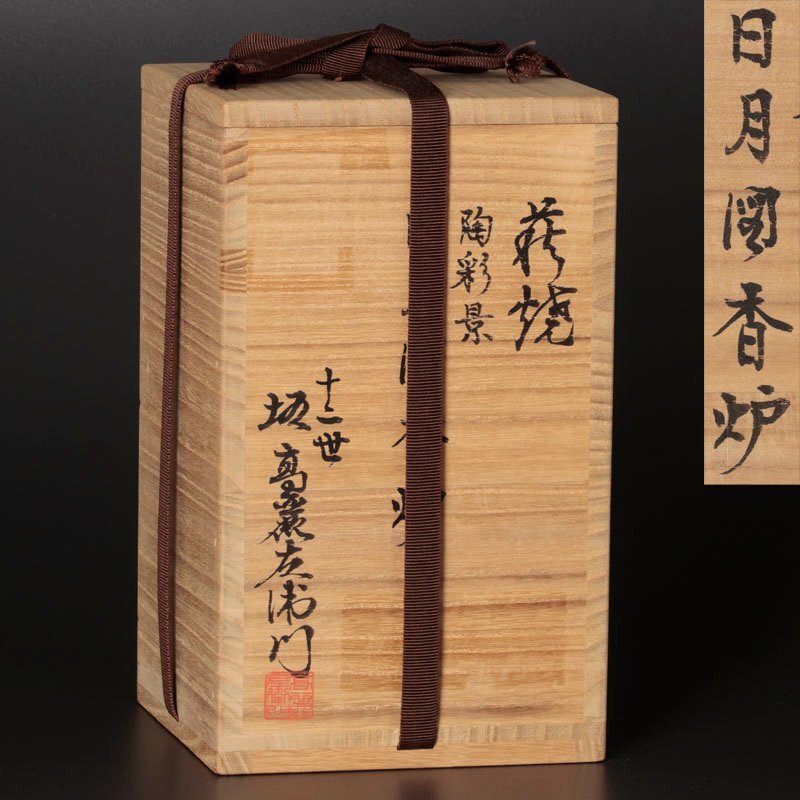 萩焼
陶彩景
日月図香炉
十二世
坂高麗左衛門